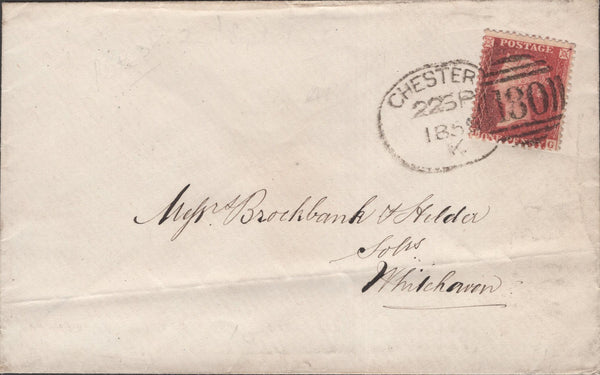 POSTAGE
CHESTER
22SP
185
K
180
G
Messrs Brockbank & Helder
Solrs
Whitehaven